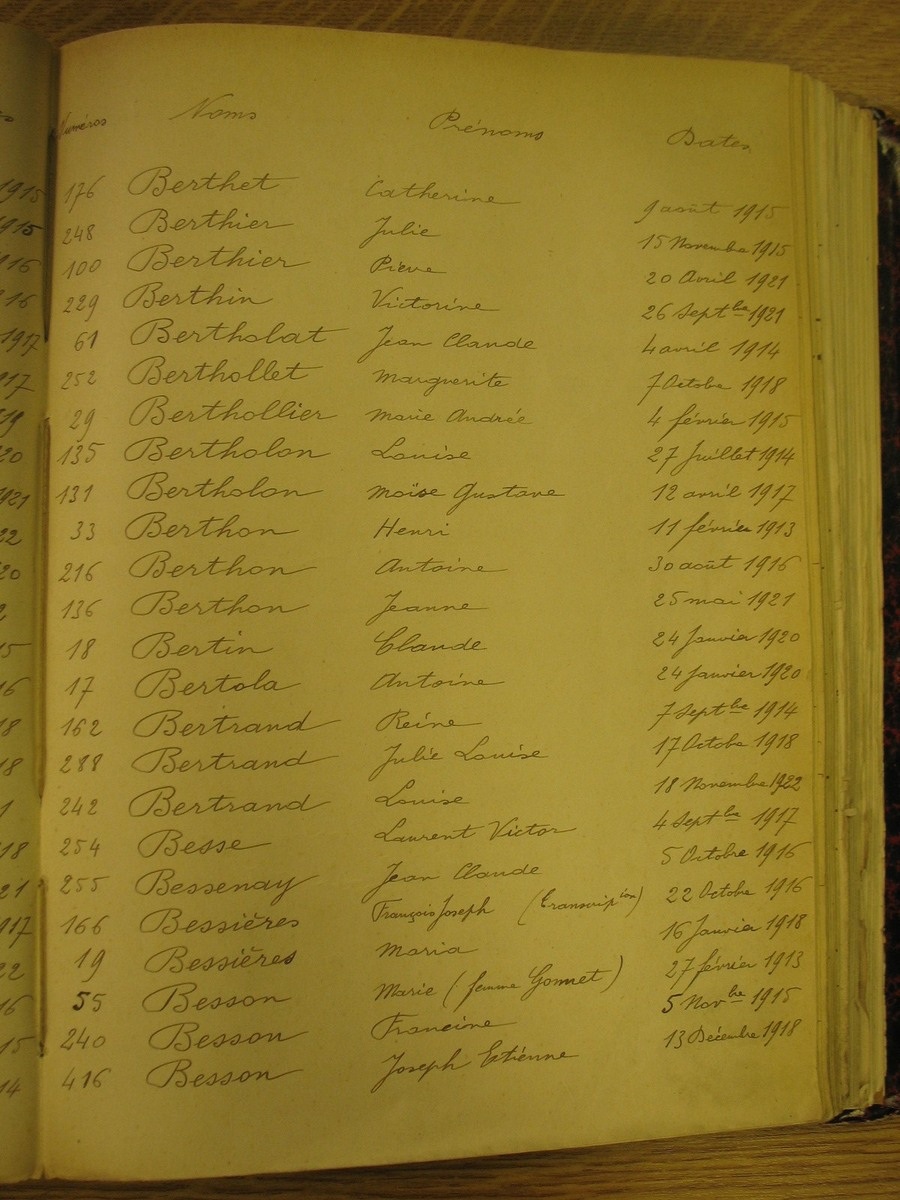 Numéros Noms Prénoms Dates
176 Berthet Catherine 9 août 1915
248 Berthier Julie 15 Novembre 1915
100 Berthier Pierre 20 Avril 1921
229 Berthin Victorine 26 Septbre 1921
61 Bertholat Jean Claude 4 avril 1914
252 Berthollet Marguerite 7 Octobre 1918
29 Berthollier Marie Andrée 4 février 1915
135 Bertholon Louise 27 Juillet 1914
131 Bertholon Moïse Gustave 12 avril 1917
33 Berthon Henri 11 février 1913
216 Berthon Antoine 30 août 1916
136 Berthon Jeanne 25 mai 1921
18 Bertin Claude 24 Janvier 1920
17 Bertola Antoine 24 Janvier 1920
162 Bertrand Reine 7 Septbre 1914
288 Bertrand Julie Louise 17 Octobre 1918
242 Bertrand Louise 18 Novembre 1922
254 Besse Laurent Victor 4 Septbre 1917
255 Bessenay Jean Claude 5 Octobre 1916
166 Bessières François Joseph (transcription) 22 Octobre 1916
19 Bessières Maria 16 Janvier 1918
55 Besson Marie (femme Gonnet) 27 février 1913
240 Besson Francine 5 Novbre 1915
416 Besson Joseph Etienne 13 Décembre 1918